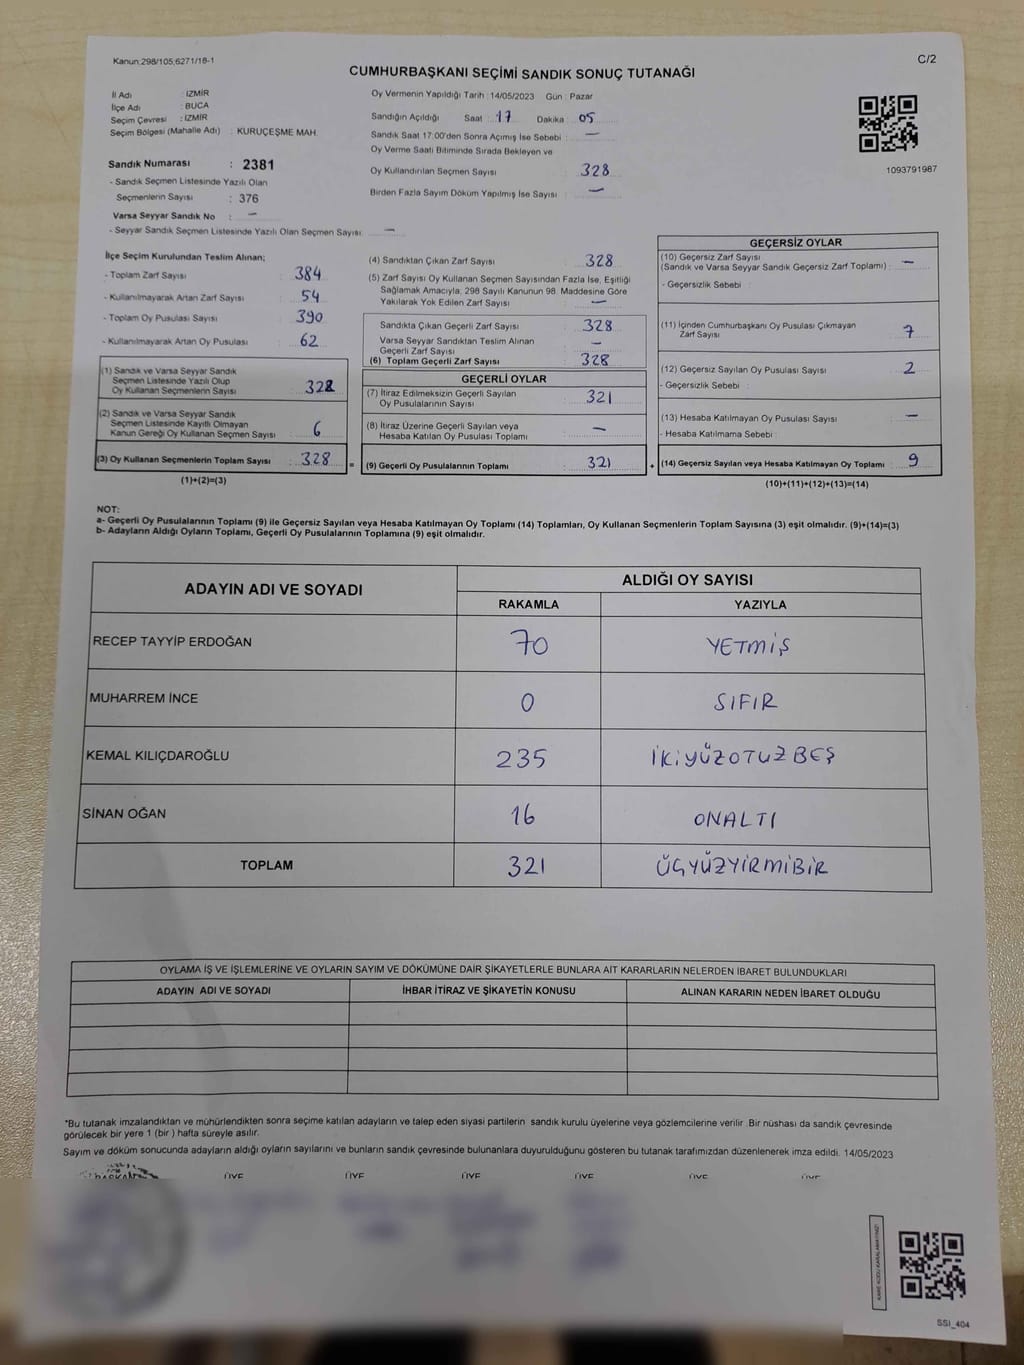 Kanun:298/105,6271/18-1
C/2
CUMHURBAŞKANI SEÇİMİ SANDIK SONUÇ TUTANAĞI
İl Adı : İZMİR
İlçe Adı : BUCA
Seçim Çevresi : İZMİR
Seçim Bölgesi (Mahalle Adı) : KURUÇEŞME MAH.
Sandık Numarası : 2381
- Sandık Seçmen Listesinde Yazılı Olan
Seçmenlerin Sayısı : 376
Varsa Seyyar Sandık No : —
- Seyyar Sandık Seçmen Listesinde Yazılı Olan Seçmen Sayısı: —
Oy Vermenin Yapıldığı Tarih : 14/05/2023 Gün : Pazar
Sandığın Açıldığı Saat : 17 Dakika : 05
Sandık Saat 17:00'den Sonra Açımış İse Sebebi : —
Oy Verme Saati Bitiminde Sırada Bekleyen ve
Oy Kullandırılan Seçmen Sayısı : 328
Birden Fazla Sayım Döküm Yapılmış İse Sayısı : —
1093791987
İlçe Seçim Kurulundan Teslim Alınan;
- Toplam Zarf Sayısı : 384
- Kullanılmayarak Artan Zarf Sayısı : 54
- Toplam Oy Pusulası Sayısı : 390
- Kullanılmayarak Artan Oy Pusulası : 62
(1) Sandık ve Varsa Seyyar Sandık
Seçmen Listesinde Yazılı Olup
Oy Kullanan Seçmenlerin Sayısı : 322
(2) Sandık ve Varsa Seyyar Sandık
Seçmen Listesinde Kayıtlı Olmayan
Kanun Gereği Oy Kullanan Seçmen Sayısı : 6
(3) Oy Kullanan Seçmenlerin Toplam Sayısı : 328
(1)+(2)=(3)
(4) Sandıktan Çıkan Zarf Sayısı : 328
(5) Zarf Sayısı Oy Kullanan Seçmen Sayısından Fazla İse, Eşitliği
Sağlamak Amacıyla, 298 Sayılı Kanunun 98. Maddesine Göre
Yakılarak Yok Edilen Zarf Sayısı : —
Sandıkta Çıkan Geçerli Zarf Sayısı : 328
Varsa Seyyar Sandıktan Teslim Alınan
Geçerli Zarf Sayısı : —
(6) Toplam Geçerli Zarf Sayısı : 328
GEÇERLİ OYLAR
(7) İtiraz Edilmeksizin Geçerli Sayılan
Oy Pusulalarının Sayısı : 321
(8) İtiraz Üzerine Geçerli Sayılan veya
Hesaba Katılan Oy Pusulası Toplamı : —
= (9) Geçerli Oy Pusulalarının Toplamı : 321
GEÇERSİZ OYLAR
(10) Geçersiz Zarf Sayısı
(Sandık ve Varsa Seyyar Sandık Geçersiz Zarf Toplamı) : —
- Geçersizlik Sebebi :
(11) İçinden Cumhurbaşkanı Oy Pusulası Çıkmayan
Zarf Sayısı : 7
(12) Geçersiz Sayılan Oy Pusulası Sayısı : 2
- Geçersizlik Sebebi :
(13) Hesaba Katılmayan Oy Pusulası Sayısı : —
- Hesaba Katılmama Sebebi :
+ (14) Geçersiz Sayılan veya Hesaba Katılmayan Oy Toplamı : 9
(10)+(11)+(12)+(13)=(14)
NOT:
a- Geçerli Oy Pusulalarının Toplamı (9) ile Geçersiz Sayılan veya Hesaba Katılmayan Oy Toplamı (14) Toplamları, Oy Kullanan Seçmenlerin Toplam Sayısına (3) eşit olmalıdır. (9)+(14)=(3)
b- Adayların Aldığı Oyların Toplamı, Geçerli Oy Pusulalarının Toplamına (9) eşit olmalıdır.
ADAYIN ADI VE SOYADI ALDIĞI OY SAYISI
RAKAMLA YAZIYLA
RECEP TAYYİP ERDOĞAN 70 YETMİŞ
MUHARREM İNCE 0 SIFIR
KEMAL KILIÇDAROĞLU 235 İKİYÜZOTUZBEŞ
SİNAN OĞAN 16 ONALTI
TOPLAM 321 ÜÇYÜZYİRMİBİR
OYLAMA İŞ VE İŞLEMLERİNE VE OYLARIN SAYIM VE DÖKÜMÜNE DAİR ŞİKAYETLERLE BUNLARA AİT KARARLARIN NELERDEN İBARET BULUNDUKLARI
ADAYIN ADI VE SOYADI İHBAR İTİRAZ VE ŞİKAYETİN KONUSU ALINAN KARARIN NEDEN İBARET OLDUĞU
*Bu tutanak imzalandıktan ve mühürlendikten sonra seçime katılan adayların ve talep eden siyasi partilerin sandık kurulu üyelerine veya gözlemcilerine verilir .Bir nüshası da sandık çevresinde
görülecek bir yere 1 (bir ) hafta süreyle asılır.
Sayım ve döküm sonucunda adayların aldığı oyların sayılarını ve bunların sandık çevresinde bulunanlara duyurulduğunu gösteren bu tutanak tarafımızdan düzenlenerek imza edildi. 14/05/2023
BAŞKAN ÜYE ÜYE ÜYE ÜYE ÜYE ÜYE
SSI_404